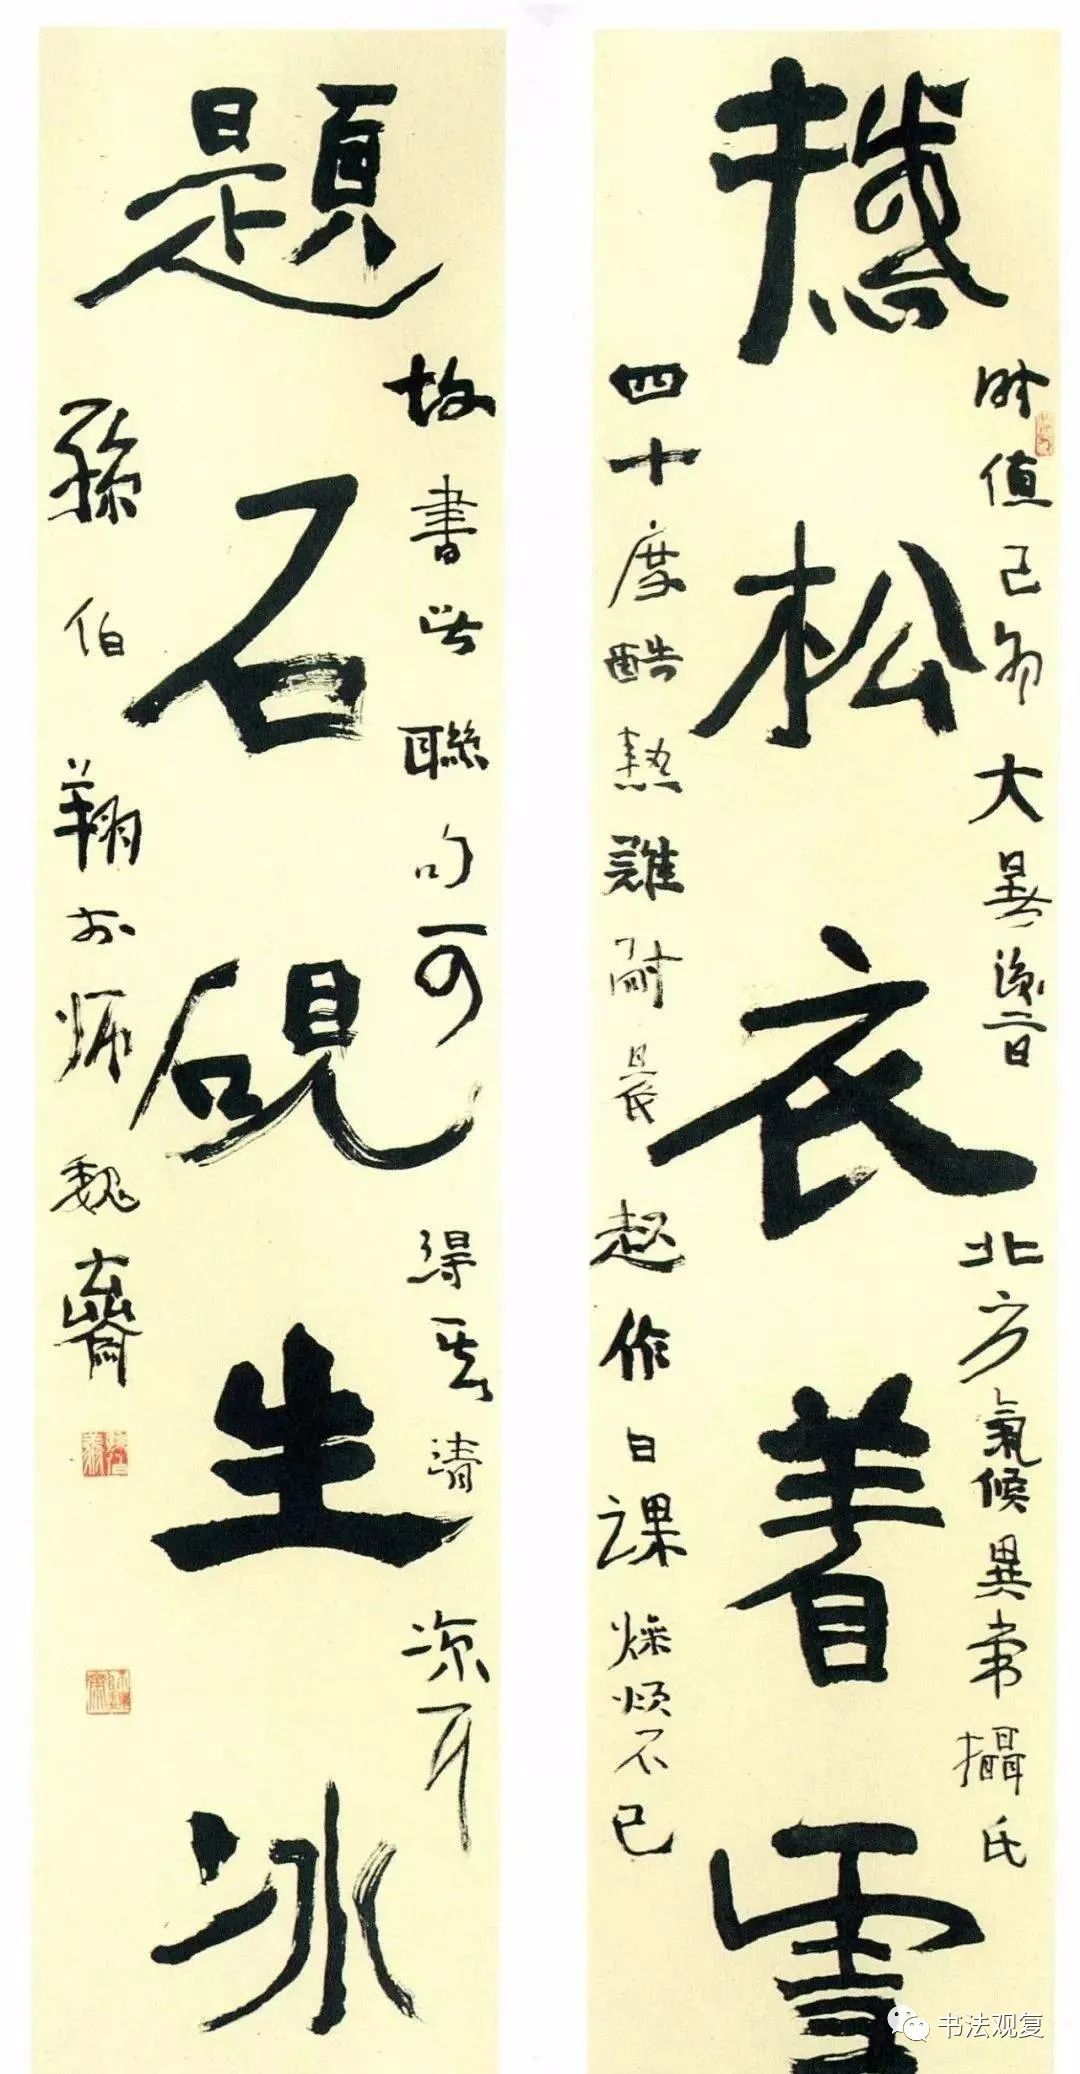 撼松衣着雪
时值己卯大暑後二日北方氣候異常攝氏
四十度酷熱難耐晨起作日課燥煩不已
題石硯生冰
故書此聯句可得其清凉耳
孫伯翔於師魏齋
书法观复